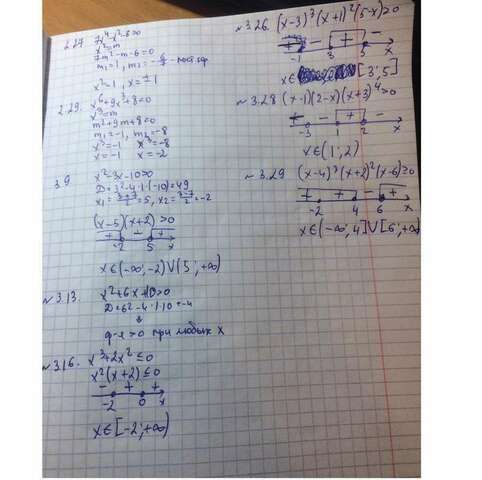 2.27. 7x⁴-x²-6=0
x²=m
7m²-m-6=0
m₁=1, m₂=-6/7 -
x²=1, x=±1
2.29. x⁶+9x³+8=0
x³=m
m²+9m+8=0
m₁=-1, m₂=-8
x³=-1 x³=-8
x=-1 x=-2
3.9 x²-3x-10>0
D=3²-4·1·(-10)=49
x₁=(3+7)/2=5, x₂=(3-7)/2=-2
(x-5)(x+2)>0
+ - +
-2 5 x
x∈(-∞;-2)∨(5;+∞)
~3.13. x²+6x+10>0
D=6²-4·1·10=-4
⇓
ф-я >0 при любых x
~3.16. x³+2x²≤0
x²(x+2)≤0
- + +
-2 0 x
x∈[-2;+∞)
~3.26. (x-3)³(x+1)²(5-x)≥0
- - + -
-1 3 5 x
x∈ [3;5]
~3.28 (x-1)(2-x)(x+3)⁴>0
- - + -
-3 1 2 x
x∈(1;2)
~3.29 (x-4)³(x+2)²(x-6)≥0
+ + - +
-2 4 6 x
x∈(-∞;4]∨[6;+∞)